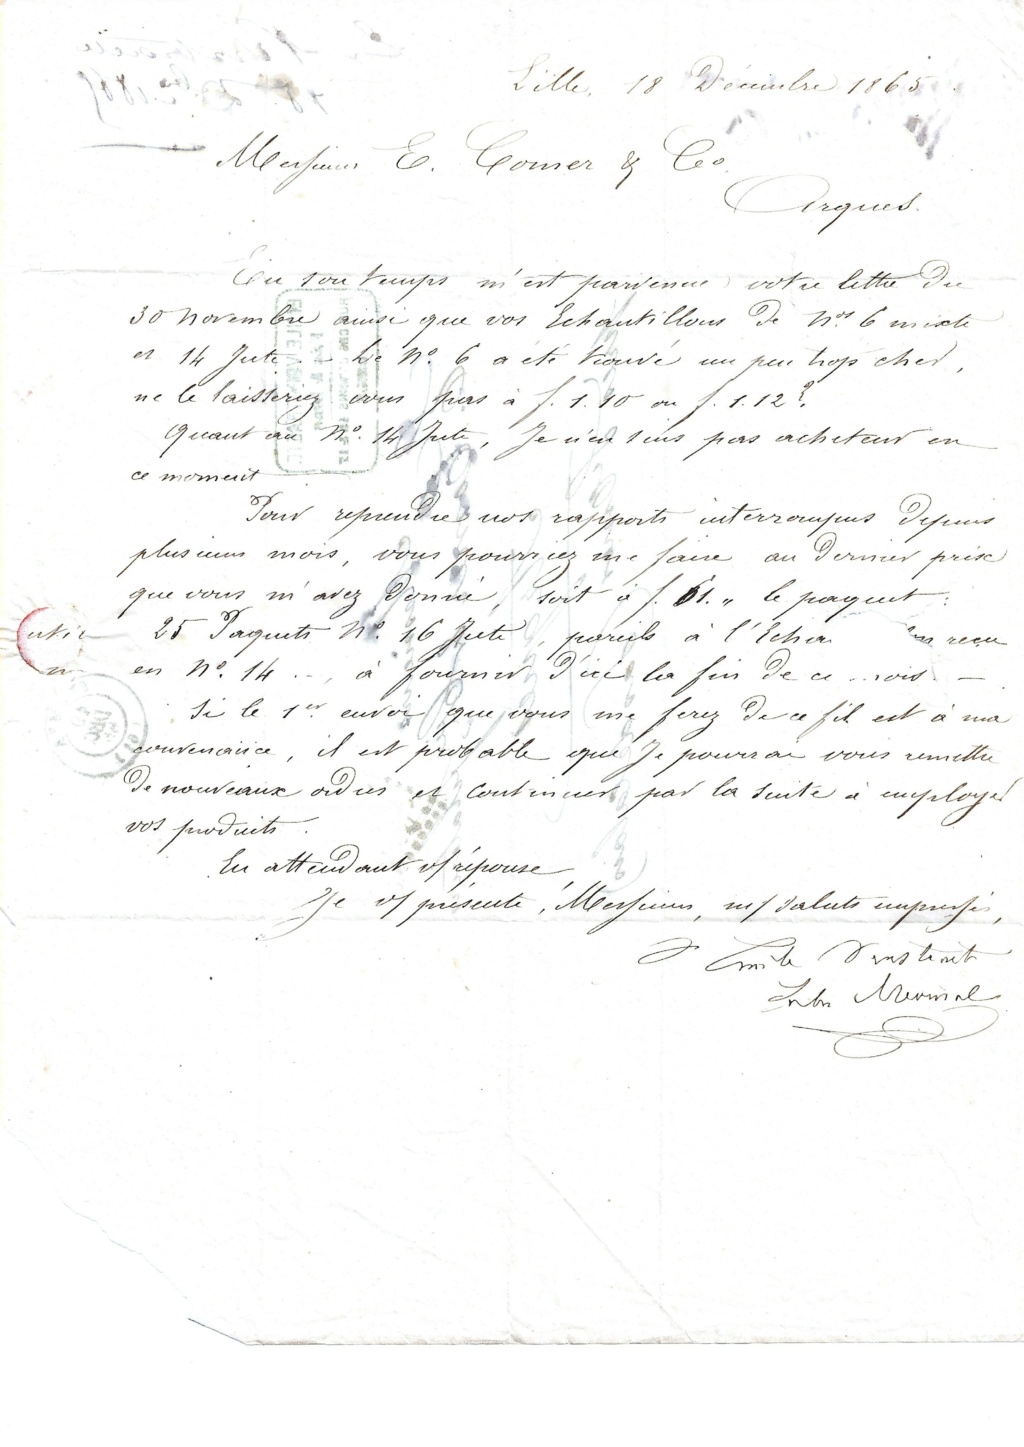 Lille, 18 Décembre 1865.
Messieurs E. Comer & Co.
Arques.
En son temps m'est parvenue votre lettre du
30 Novembre ainsi que vos Echantillons de Nos 6 mixte
et 14 Jute. - Le No. 6 a été trouvé un peu trop cher,
ne le laisseriez vous pas à f. 1.10 ou f. 1.12?
Quant au No. 14 Jute, Je n'en suis pas acheteur en
ce moment
Pour reprendre nos rapports interrompus depuis
plusieurs mois, vous pourriez me faire au dernier prix
que vous m'avez donné, soit à f. 61. " le paquet:
25 Paquets No. 16 Jute, pareils à l'Echan reçu
en No. 14 - , à fournir d'ici la fin de ce mois -
Si le 1er envoi que vous me ferez de ce fil est à ma
convenance, il est probable que Je pourrai vous remettre
de nouveaux ordres et continuer par la suite à employer
vos produits.
En attendant v/ réponse,
Je v/ présente, Messieurs, m/ saluts empressés,
Emile